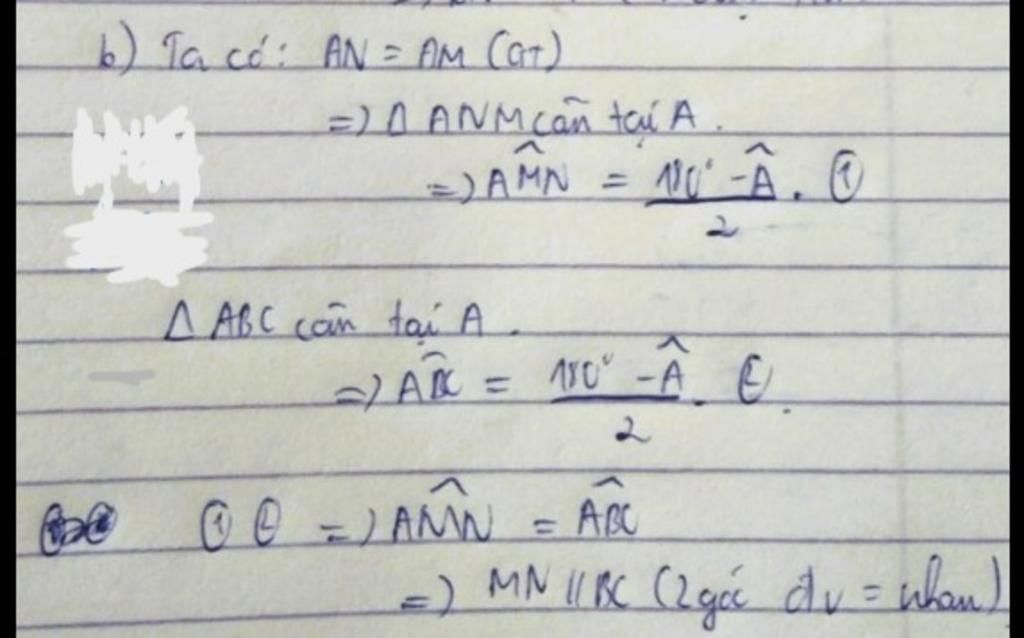 b) Ta có: AN = AM (GT)
=> Δ ANM cân tại A.
=> AM̂N = 180° - Â / 2 . ①
Δ ABC cân tại A.
=> AB̂C = 180° - Â / 2 . ②.
① ② => AM̂N = AB̂C
=> MN // BC (2 góc đv = nhau)